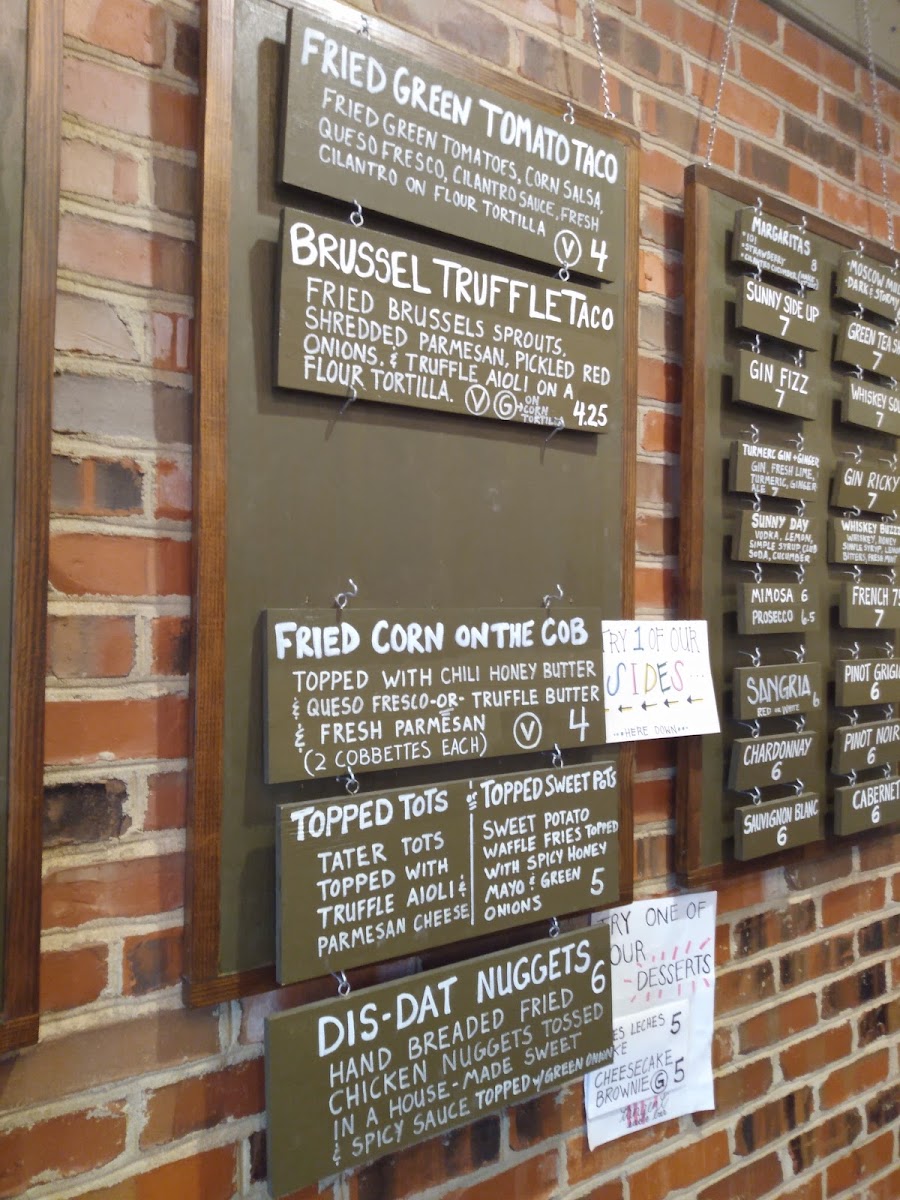 FRIED GREEN TOMATO TACO
FRIED GREEN TOMATOES, CORN SALSA,
QUESO FRESCO, CILANTRO SAUCE, FRESH
CILANTRO ON FLOUR TORTILLA
V 4
BRUSSEL TRUFFLE TACO
FRIED BRUSSELS SPROUTS,
SHREDDED PARMESAN, PICKLED RED
ONIONS, & TRUFFLE AIOLI ON A
FLOUR TORTILLA. V G → ON
CORN
TORTILLA 4.25
FRIED CORN ON THE COB
TOPPED WITH CHILI HONEY BUTTER
& QUESO FRESCO -OR- TRUFFLE BUTTER
& FRESH PARMESAN
(2 COBBETTES EACH) V 4
TRY 1 OF OUR
SIDES...
HERE DOWN
TOPPED TOTS
TATER TOTS
TOPPED WITH
TRUFFLE AIOLI &
PARMESAN CHEESE
TOPPED SWEET POTS
SWEET POTATO
WAFFLE FRIES TOPPED
WITH SPICY HONEY
MAYO & GREEN
ONIONS 5
DIS-DAT NUGGETS 6
HAND BREADED FRIED
CHICKEN NUGGETS TOSSED
IN A HOUSE-MADE SWEET
& SPICY SAUCE TOPPED W/ GREEN ONION
TRY ONE OF
OUR
DESSERTS
ES LECHES 5
KE
CHEESECAKE
BROWNIE G 5
MARGARITAS
•101
•STRAWBERRY 8
SUNNY SIDE UP
7
GIN FIZZ
7
TURMERC GIN + GINGER
GIN, FRESH LIME,
TURMERIC, GINGER
ALE 7
SUNNY DAY
VODKA, LEMON,
SIMPLE SYRUP, CLUB
SODA, CUCUMBER
MIMOSA 6
PROSECCO 6.5
SANGRIA
RED OR WHITE 6
CHARDONNAY
6
SAUVIGNON BLANC
6
•MOSCOW MUL
•DARK & STORMY
GREEN TEA S
7
WHISKEY SOU
7
GIN RICKY
7
WHISKEY BUZZ
WHISKEY, HONEY
SIMPLE SYRUP, LEMON
BITTERS, FRESH MINT
FRENCH 75
7
PINOT GRIGIO
6
PINOT NOIR
6
CABERNET
6